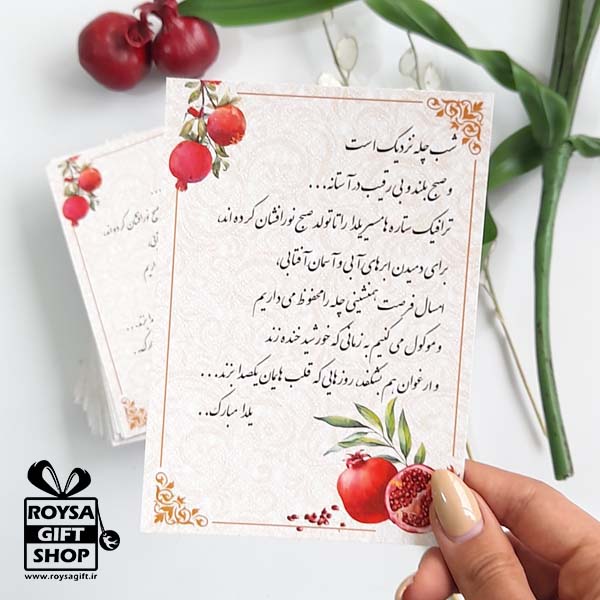 شب چله نزدیک است
و صبح بلند و بی رقیب در آستانه...
ترافیک ستاره ها مسیر یلدا را تا تولد صبح نورافشان کرده اند،
برای دمیدن ابرهای آبی و آسمان آفتابی،
امسال فرصت همنشینی چله را محفوظ می داریم
و موکول می کنیم به زمانی که خورشید خنده زند
و ارغوان هم بشکفد، روزهایی که قلب هایمان یکصدا بزند...
یلدا مبارک..
...
صبح نورافشان کرده اند،
ریم
بزند...
یلدا مبارک..
ROYSA
GIFT
SHOP
www.roysagift.ir